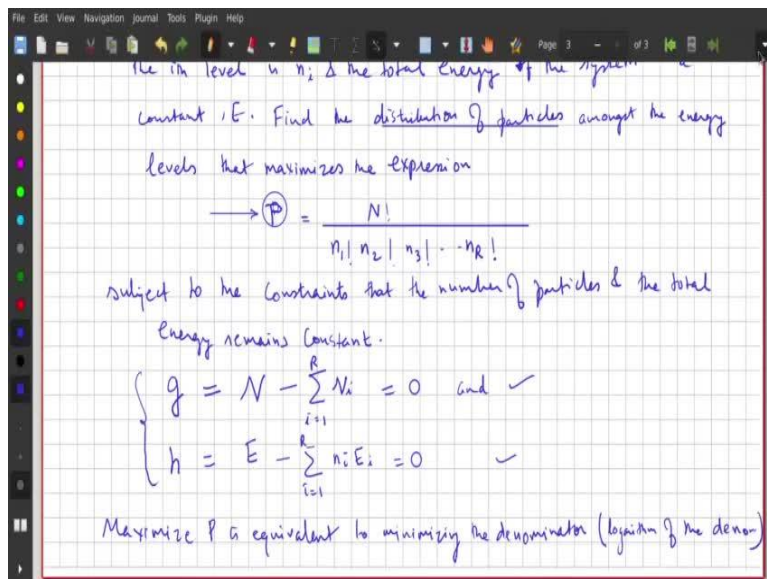 File Edit View Navigation Journal Tools Plugin Help
Page 3 of 3
the ith level is n_i & the total energy of the system is a
constant, E. Find the distribution of particles amongst the energy
levels that maximizes the expression
→ P = N! / n_1! n_2! n_3! ... n_R!
subject to the constraints that the number of particles & the total
energy remains constant.
g = N - ∑_{i=1}^{R} N_i = 0 and ✓
h = E - ∑_{i=1}^{R} n_i E_i = 0 ✓
Maximize P is equivalent to minimizing the denominator (logarithm of the denom)